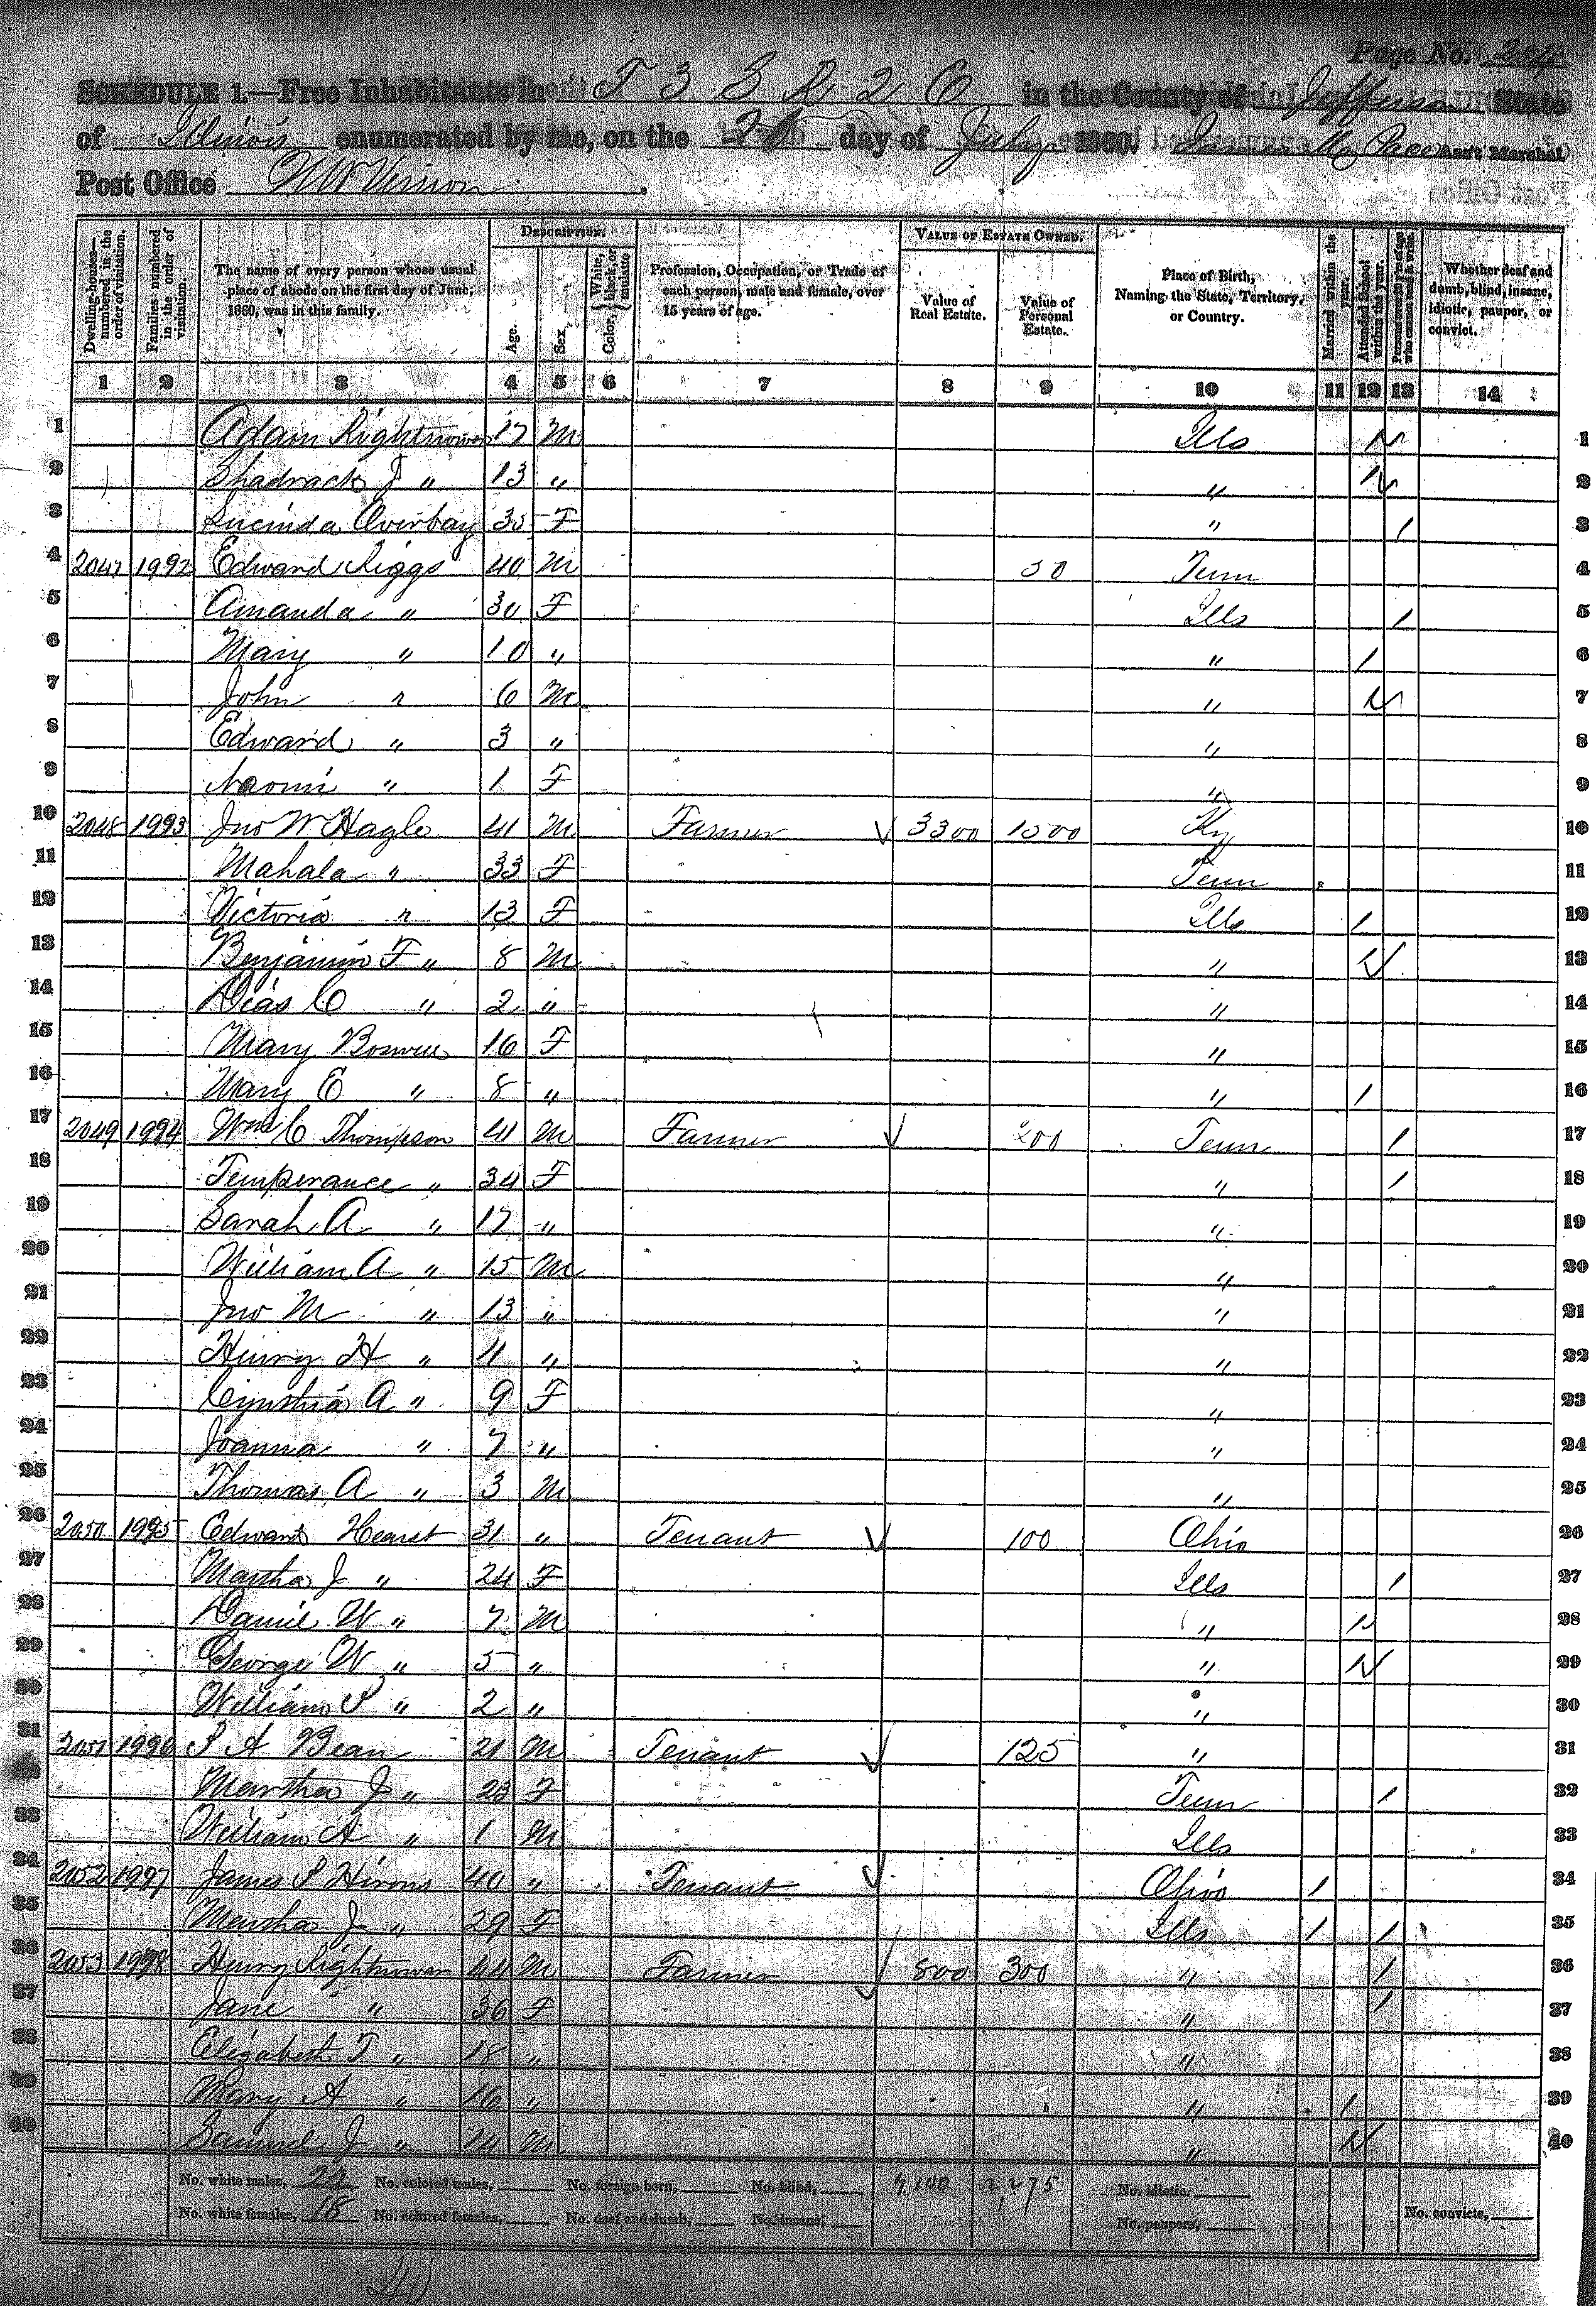 Page No. 284
SCHEDULE 1.—Free Inhabitants in T 3 S R 2 E in the County of Jefferson State
of Illinois enumerated by me, on the 20 day of July 1860. James M Pace Ass't Marshal
Post Office Mt Vernon.
Dwelling-houses—numbered in the order of visitation. Families numbered in the order of visitation. The name of every person whose usual place of abode on the first day of June, 1860, was in this family. DESCRIPTION. Age. Sex. Color, White, black, or mulatto Profession, Occupation, or Trade of each person, male and female, over 15 years of age. VALUE OF ESTATE OWNED. Value of Real Estate. Value of Personal Estate. Place of Birth, Naming the State, Territory, or Country. Married within the year. Attended School within the year. Persons over 20 y'rs of age who cannot read & write. Whether deaf and dumb, blind, insane, idiotic, pauper, or convict.
1 2 3 4 5 6 7 8 9 10 11 12 13 14
1 Adam Rightnowar 17 M Ills 1 1
2 Shadrack J " 13 " " 1 2
3 Lucinda Overbay 30 F " 1 3
4 2047 1992 Edward Riggs 40 M 50 Tenn 4
5 Amanda " 30 F Ills 1 5
6 Mary " 10 " " 1 6
7 John " 6 M " 1 7
8 Edward " 3 " " 8
9 Naomi " 1 F " 9
10 2048 1993 Jno W Hagle 41 M Farmer 3300 1500 Ky 10
11 Mahala " 33 F Tenn 11
12 Victoria " 13 F Ills 1 12
13 Benjamin F " 8 M " 1 13
14 C " 2 " " 14
15 Mary Boswell 16 F " 15
16 Mary E " 8 " " 1 16
17 2049 1994 Wm C Thompson 41 M Farmer 200 Tenn 1 17
18 Temperance " 34 F " 1 18
19 Sarah A " 17 " " 19
20 William A " 15 M " 20
21 Jno M " 13 " " 21
22 Henry H " 11 " " 22
23 Cynthia A " 9 F " 23
24 Joanna " 7 " " 24
25 Thomas A " 3 M " 25
26 2050 1995 Edward Hearst 31 " Tenant 100 Ohio 26
27 Martha J " 24 F Ills 1 27
28 Daniel W " 7 M " 1 28
29 George W " 5 " " 1 29
30 William S " 2 " " 30
31 2051 1996 S A Bean 21 M Tenant 125 " 31
Martha J " 23 F Tenn 1 32
33 William A " 1 M Ills 33
34 2052 1997 James S Hirons 40 " Tenant Ohio 1 34
35 Martha J " 29 F Ills 1 1 35
36 2053 1998 Henry Rightnowar 44 M Farmer 800 300 " 1 36
37 Jane " 36 F " 1 37
38 Elizabeth T " 18 " " 38
39 Mary A " 16 " " 1 39
40 Samuel J " 14 M " 1 40
No. white males, 22 No. colored males, No. foreign born, No. blind, 4,100 2,275 No. idiotic,
No. white females, 18 No. colored females, No. deaf and dumb, No. insane, No. paupers, No. convicts,
40